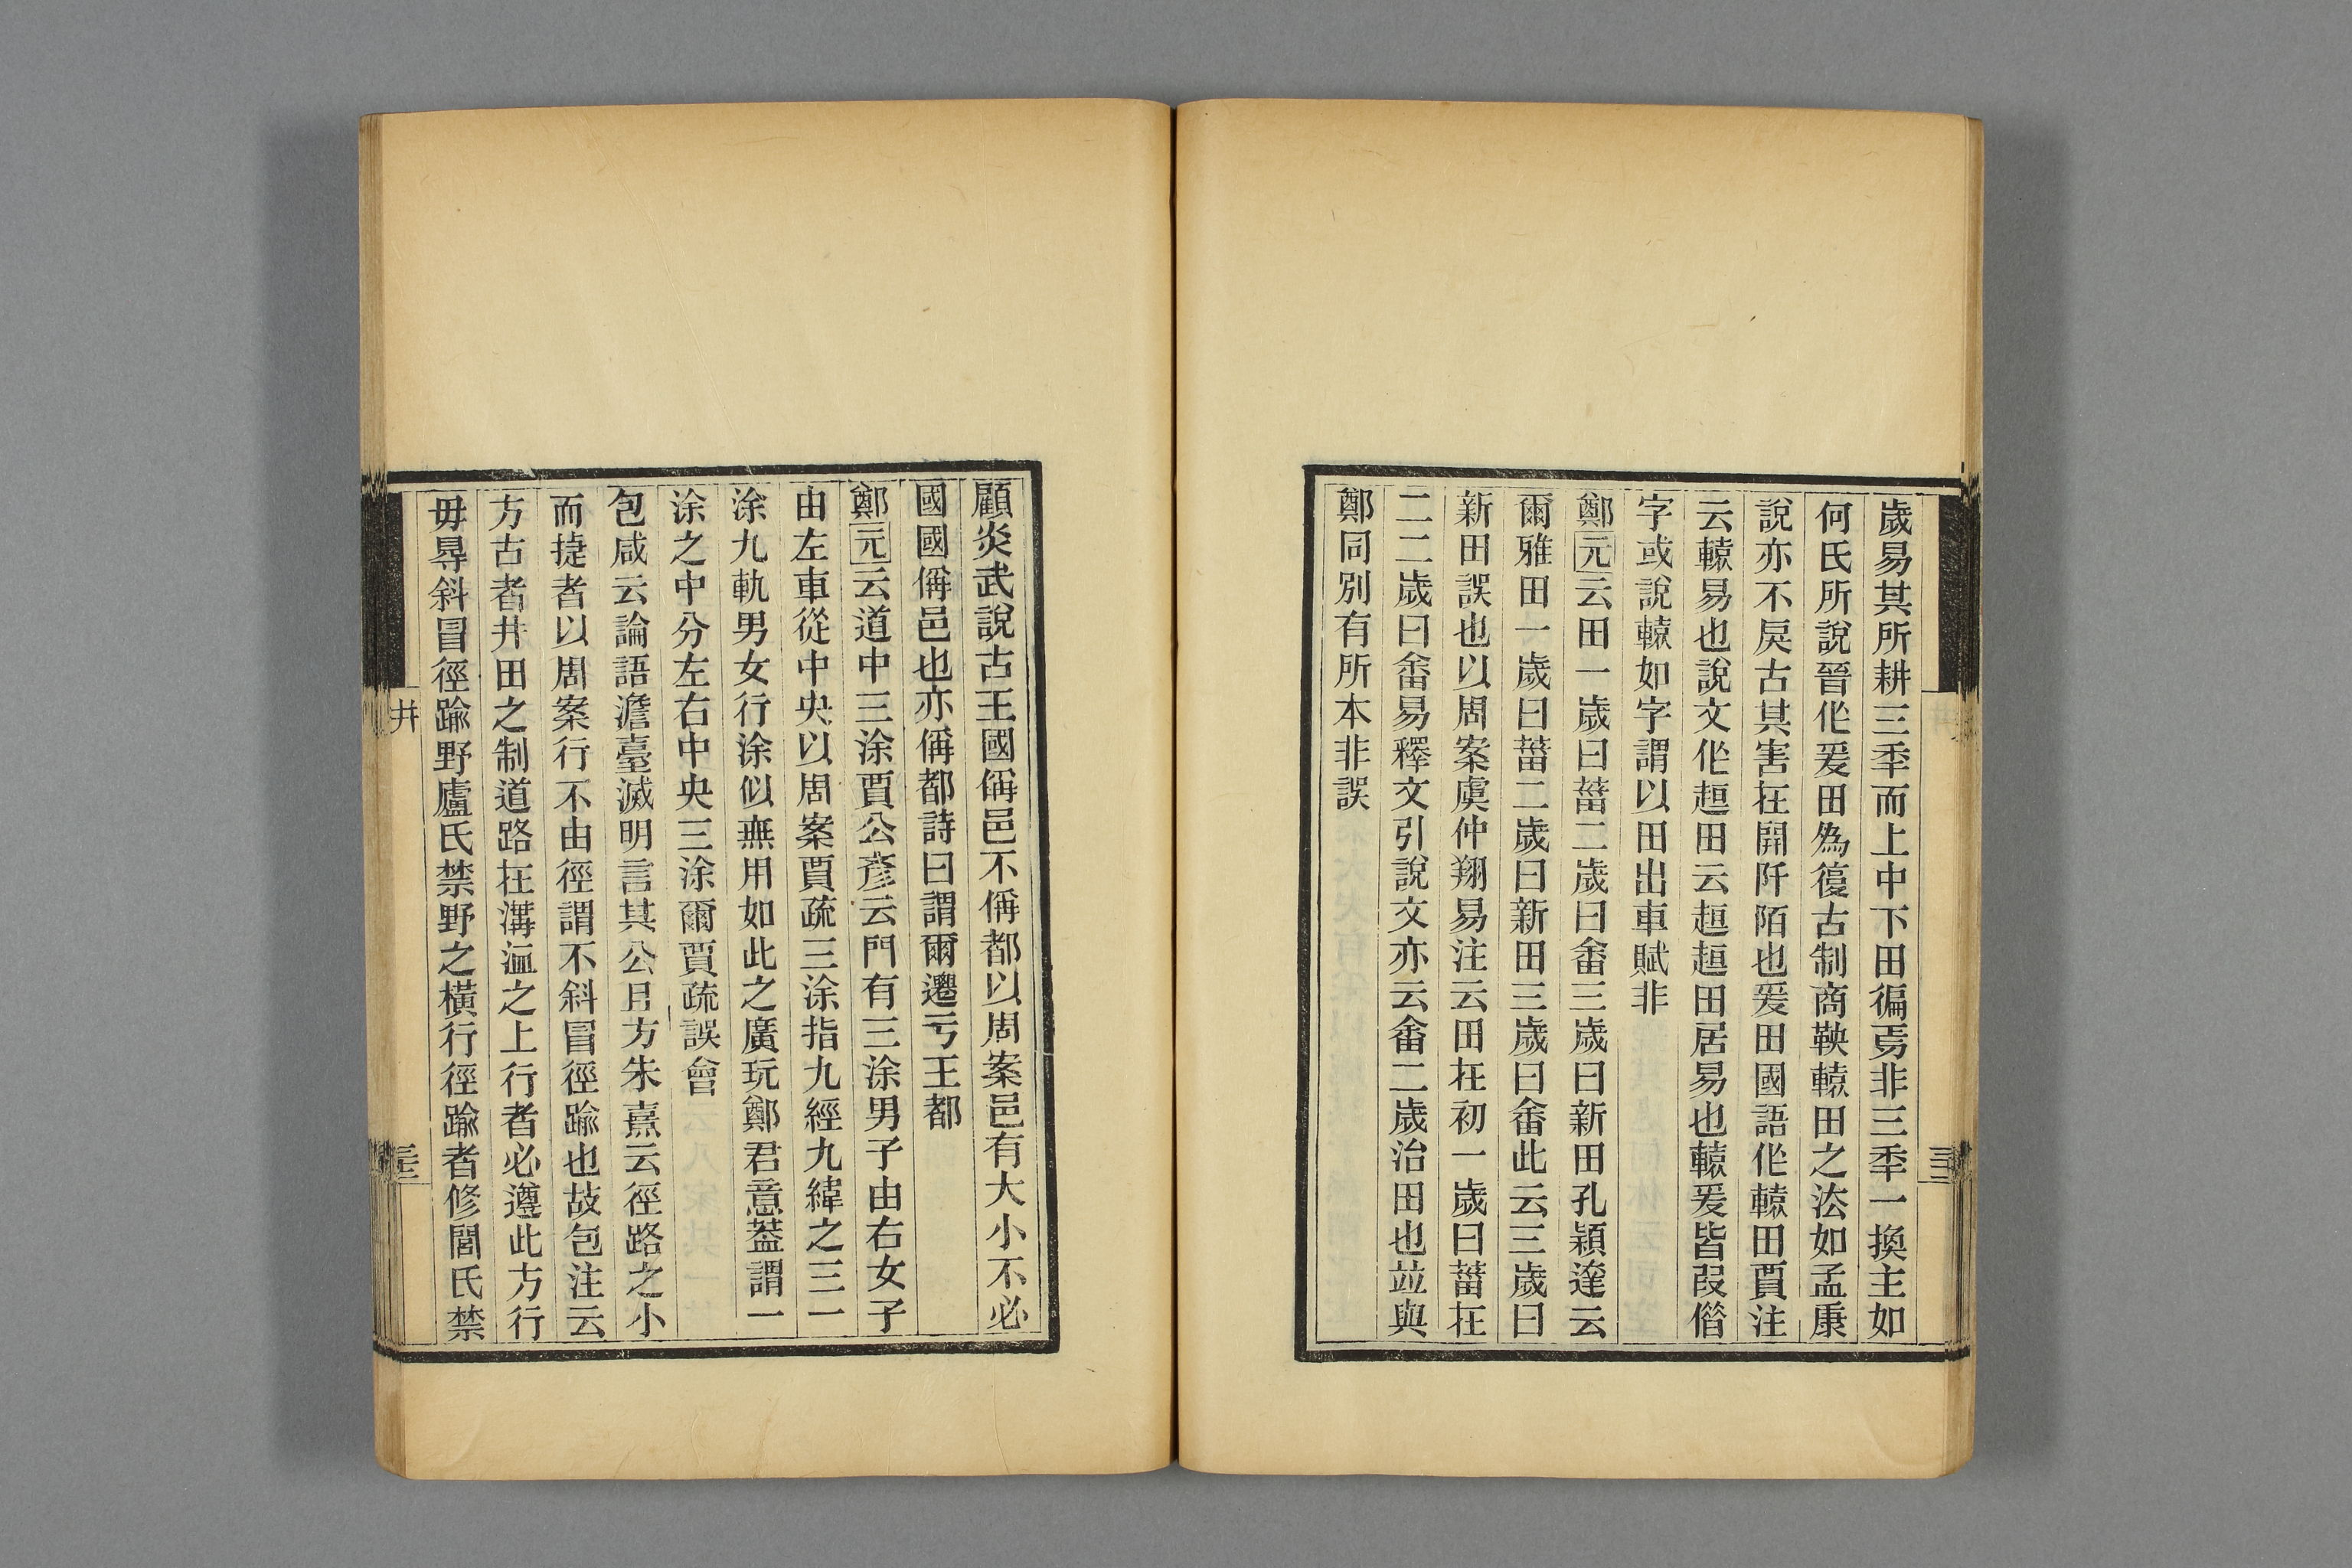 歲易其所耕三秊而上中下田徧焉非三秊一換主如
何氏所說晉作爰田為復古制商鞅轅田之法如孟康
說亦不戾古其害在開阡陌也爰田國語作轅田賈注
云轅易也說文作趄田云趄趄田居易也轅爰皆叚僭
字或說轅如字謂以田出車賦非
鄭元云田一歲曰菑二歲曰畬三歲曰新田孔穎達云
爾雅田一歲曰菑二歲曰新田三歲曰畬此云三歲曰
新田誤也以周案虞仲翔易注云田在初一歲曰菑在
二二歲曰畬易釋文引說文亦云畬二歲治田也竝與
鄭同別有所本非誤
顧炎武說古王國偁邑不偁都以周案邑有大小不必
國國偁邑也亦偁都詩曰謂爾遷亏王都
鄭元云道中三涂賈公彥云門有三涂男子由右女子
由左車從中央以周案賈疏三涂指九經九緯之三一
涂九軌男女行涂似無用如此之廣玩鄭君意葢謂一
涂之中分左右中央三涂爾賈疏誤會
包咸云論語澹臺滅明言其公且方朱熹云徑路之小
而捷者以周案行不由徑謂不斜冒徑踰也故包注云
方古者井田之制道路在溝洫之上行者必遵此方行
毋㝵斜冒徑踰野廬氏禁野之橫行徑踰者修閭氏禁
井